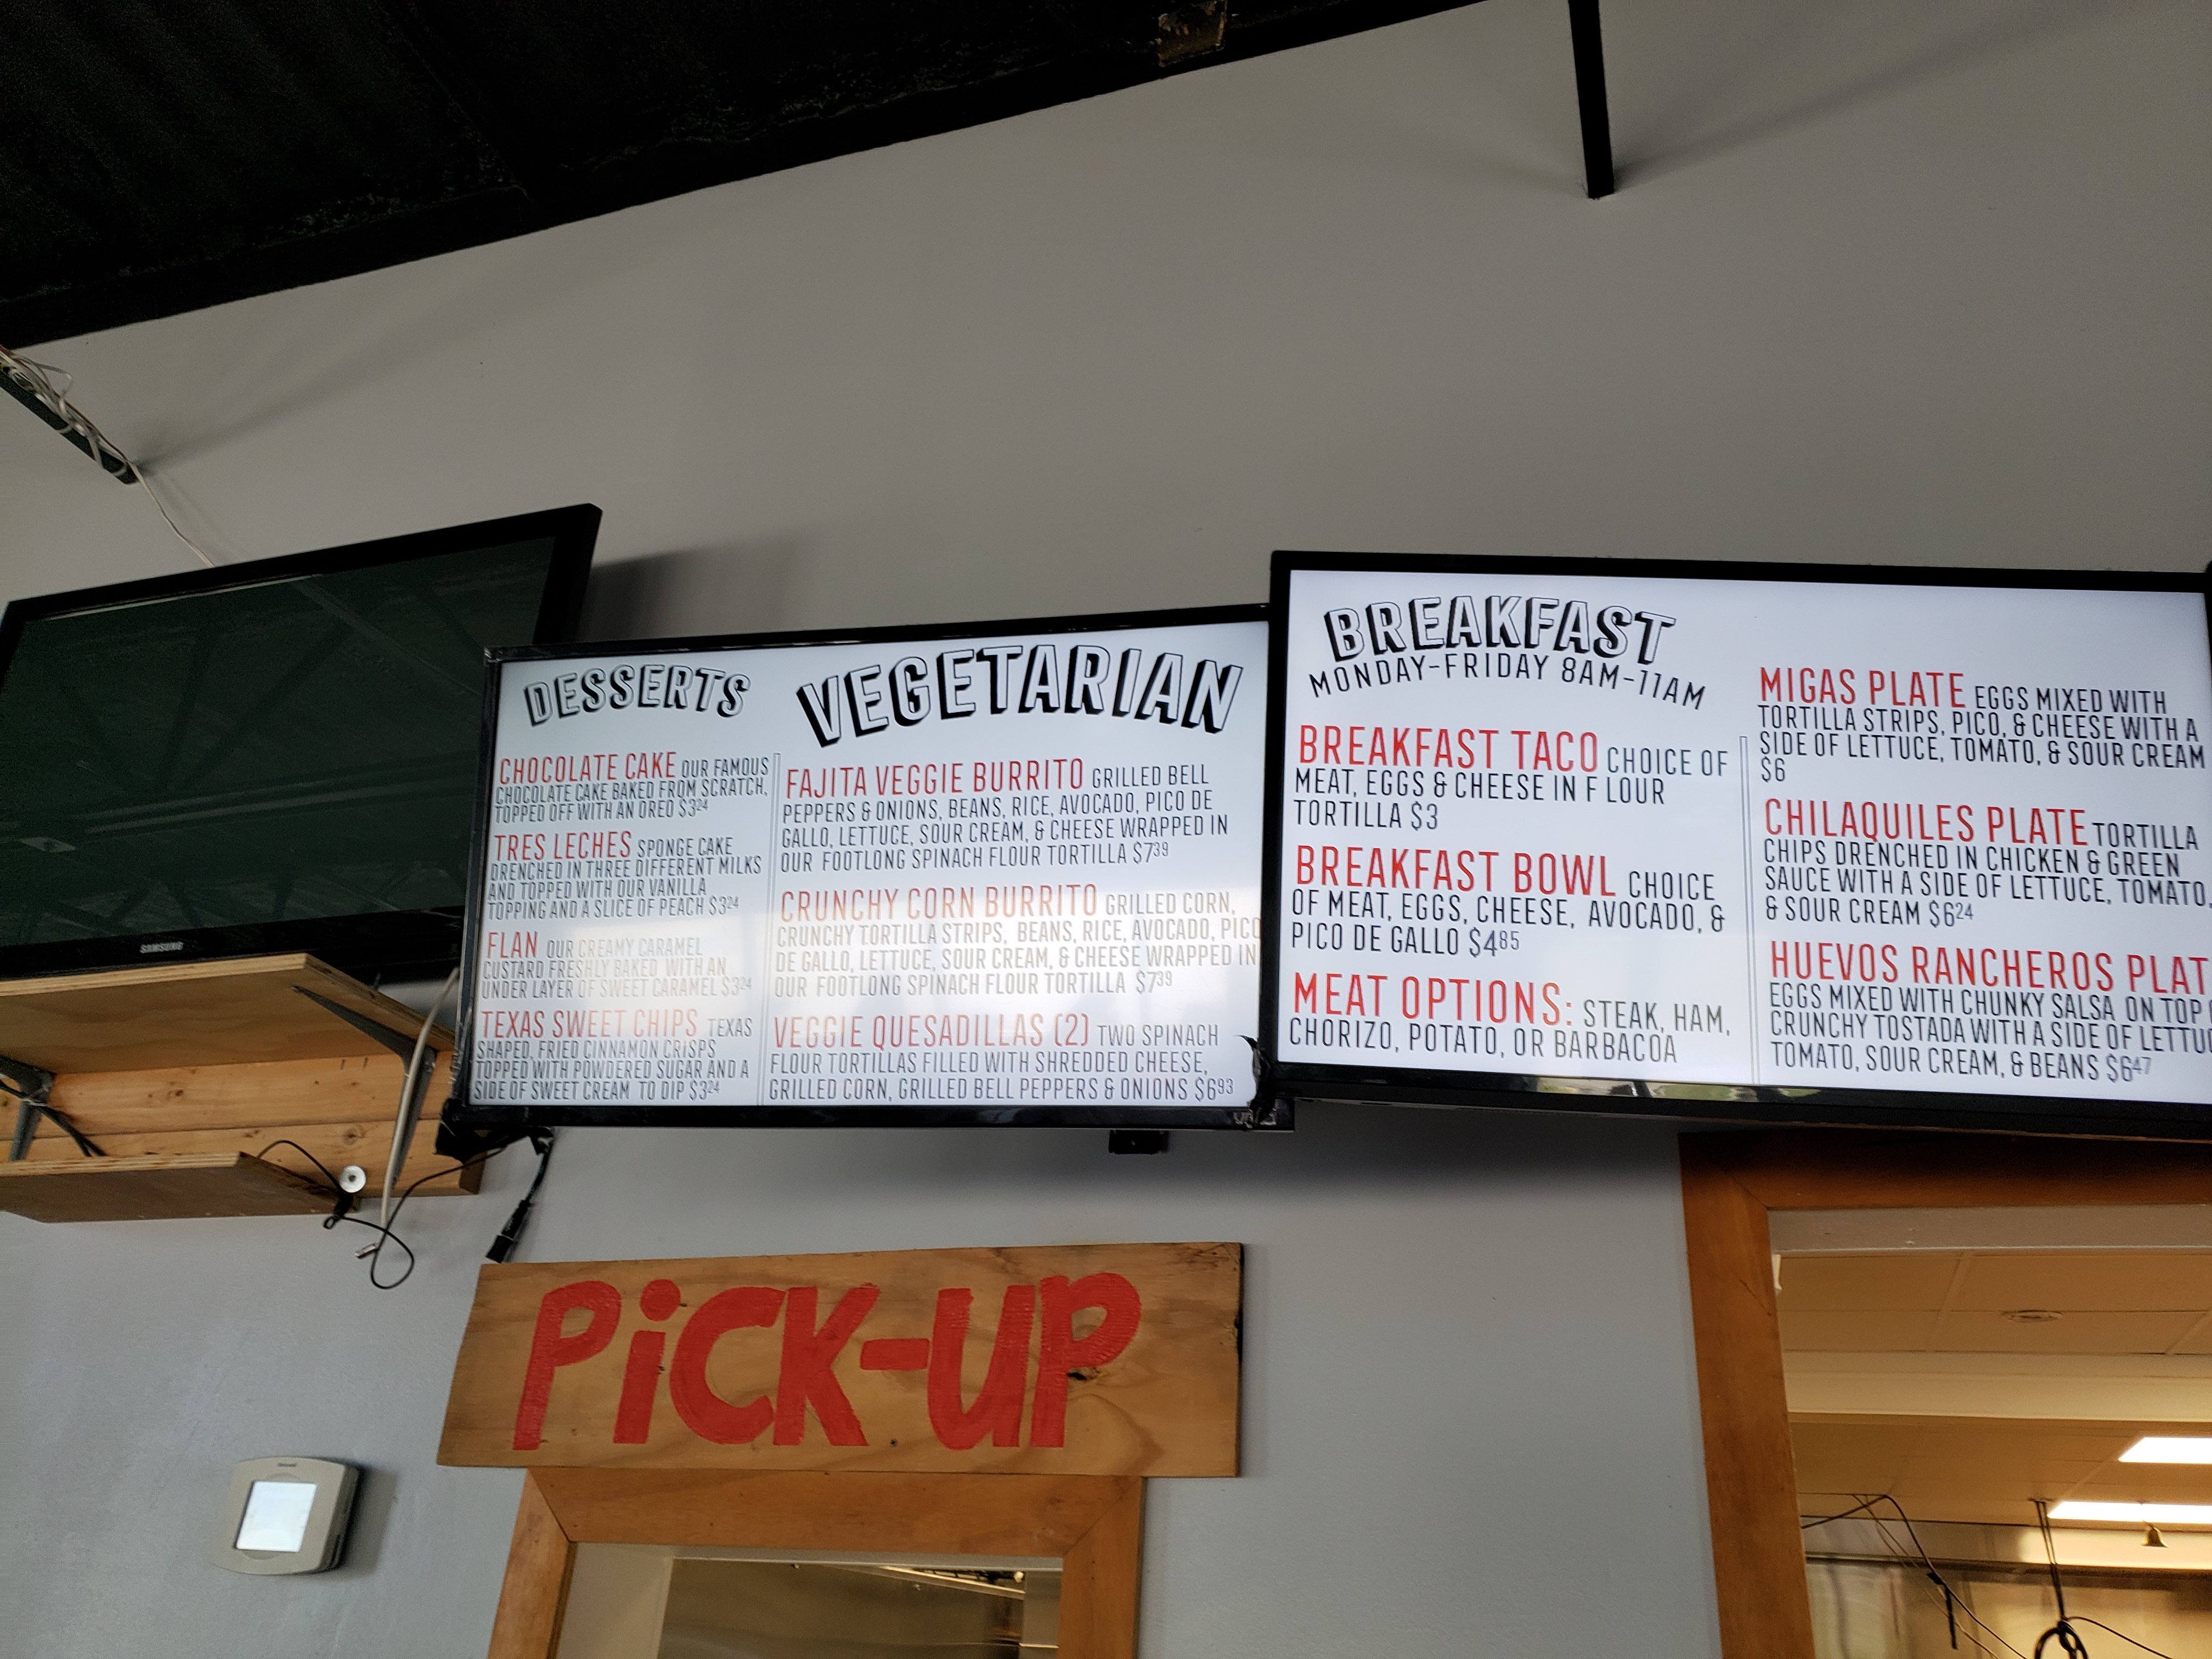 DESSERTS
CHOCOLATE CAKE OUR FAMOUS
CHOCOLATE CAKE BAKED FROM SCRATCH,
TOPPED OFF WITH AN OREO $324
TRES LECHES SPONGE CAKE
DRENCHED IN THREE DIFFERENT MILKS
AND TOPPED WITH OUR VANILLA
TOPPING AND A SLICE OF PEACH $324
FLAN OUR CREAMY CARAMEL
CUSTARD FRESHLY BAKED WITH AN
UNDER LAYER OF SWEET CARAMEL $324
TEXAS SWEET CHIPS TEXAS
SHAPED, FRIED CINNAMON CRISPS
TOPPED WITH POWDERED SUGAR AND A
SIDE OF SWEET CREAM TO DIP $324
VEGETARIAN
FAJITA VEGGIE BURRITO GRILLED BELL
PEPPERS & ONIONS, BEANS, RICE, AVOCADO, PICO DE
GALLO, LETTUCE, SOUR CREAM, & CHEESE WRAPPED IN
OUR FOOTLONG SPINACH FLOUR TORTILLA $739
CRUNCHY CORN BURRITO GRILLED CORN,
CRUNCHY TORTILLA STRIPS, BEANS, RICE, AVOCADO, PICO
DE GALLO, LETTUCE, SOUR CREAM, & CHEESE WRAPPED IN
OUR FOOTLONG SPINACH FLOUR TORTILLA $739
VEGGIE QUESADILLAS (2) TWO SPINACH
FLOUR TORTILLAS FILLED WITH SHREDDED CHEESE,
GRILLED CORN, GRILLED BELL PEPPERS & ONIONS $693
BREAKFAST
MONDAY-FRIDAY 8AM-11AM
BREAKFAST TACO CHOICE OF
MEAT, EGGS & CHEESE IN F LOUR
TORTILLA $3
BREAKFAST BOWL CHOICE
OF MEAT, EGGS, CHEESE, AVOCADO, &
PICO DE GALLO $485
MEAT OPTIONS: STEAK, HAM,
CHORIZO, POTATO, OR BARBACOA
MIGAS PLATE EGGS MIXED WITH
TORTILLA STRIPS, PICO, & CHEESE WITH A
SIDE OF LETTUCE, TOMATO, & SOUR CREAM
$6
CHILAQUILES PLATE TORTILLA
CHIPS DRENCHED IN CHICKEN & GREEN
SAUCE WITH A SIDE OF LETTUCE, TOMATO,
& SOUR CREAM $624
HUEVOS RANCHEROS PLAT
EGGS MIXED WITH CHUNKY SALSA ON TOP
CRUNCHY TOSTADA WITH A SIDE OF LETTU
TOMATO, SOUR CREAM, & BEANS $647
SAMSUNG
PiCK-UP